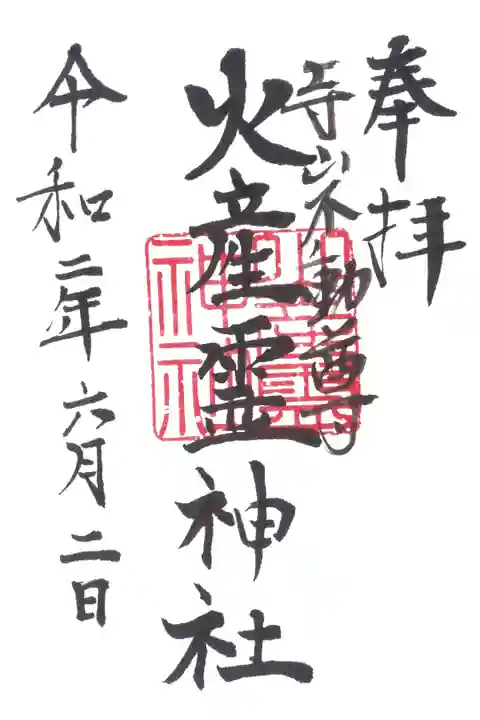 奉拝
寺山不動尊
火産霊神社
令和二年六月二日